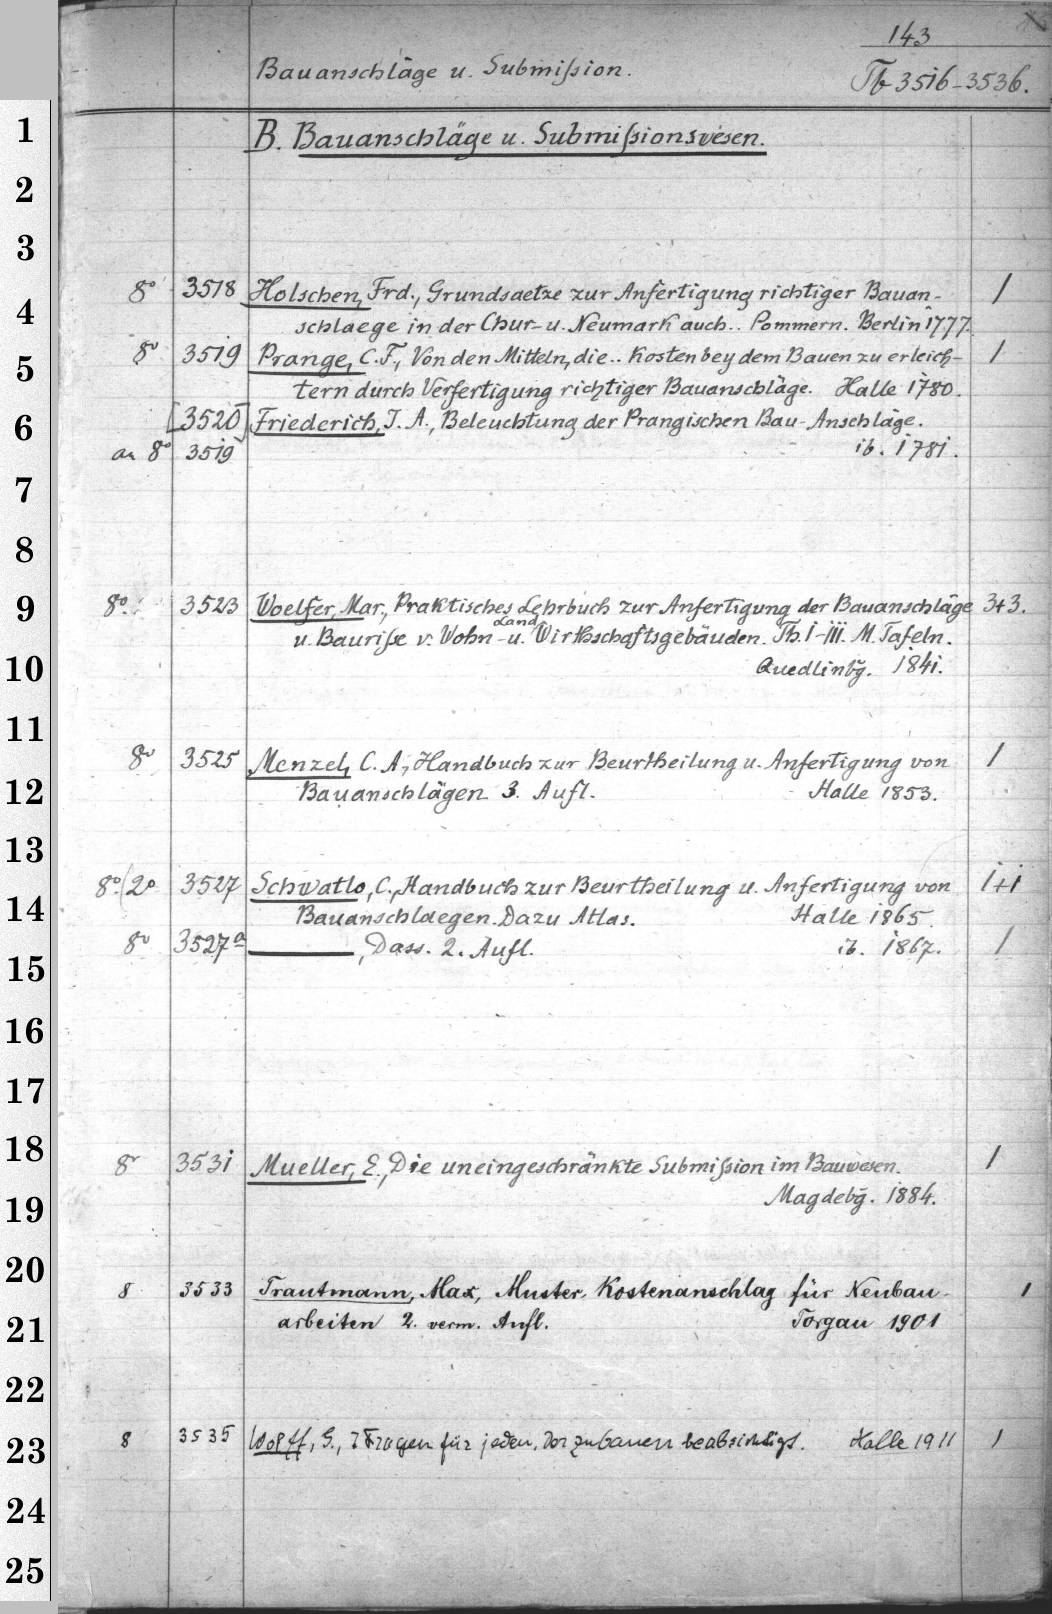 143
Bauanschläge u. Submiſsion. Tb 3516-3536.
1 B. Bauanschläge u. Submiſsionswesen.
2
3
8° 3518 Holschen, Frd., Grundsaetze zur Anfertigung richtiger Bauan- 1
4 schlaege in der Chur- u. Neumark auch.. Pommern. Berlin 1777.
8° 3519 Prange, C. F., Von den Mitteln, die.. Kosten bey dem Bauen zu erleich- 1
5 tern durch Verfertigung richtiger Bauanschläge. Halle 1780.
6 [3520] Friederich, J. A., Beleuchtung der Prangischen Bau-Anschläge.
an 8° 3519 ib. 1781.
7
8
9 8° 3523 Woelfer, Mar., Praktisches Lehrbuch zur Anfertigung der Bauanschläge 3+3.
u. Bauriſse v. Wohn- Land u. Wirthschaftsgebäuden. Th. I-III. M. Tafeln.
10 Quedlinbg. 1841.
11
8° 3525 Menzel, C. A., Handbuch zur Beurtheilung u. Anfertigung von 1
12 Bauanschlägen 3. Aufl. Halle 1853.
13
8°/2° 3527 Schwatlo, C., Handbuch zur Beurtheilung u. Anfertigung von 1+1
14 Bauanschlaegen. Dazu Atlas. Halle 1865.
8° 3527a ———, Dass. 2. Aufl. ib. 1867. 1
15
16
17
18 8° 3531 Mueller, E., Die uneingeschränkte Submiſsion im Bauwesen. 1
19 Magdebg. 1884.
20 8 3533 Trautmann, Max, Muster-Kostenanschlag für Neubau- 1
21 arbeiten 2. verm. Aufl. Torgau 1901
22
23 8 3535 Wolff, G., 7 Fragen für jeden, der zu bauen beabsichtigt. Halle 1911 1
24
25